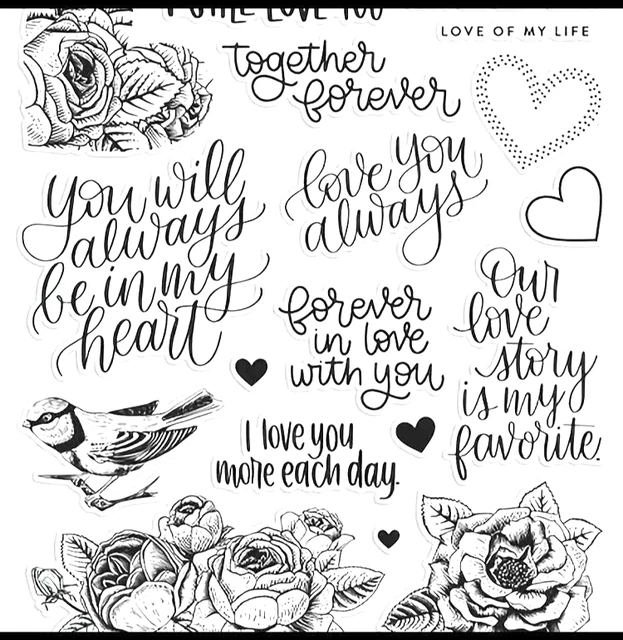 LOVE OF MY LIFE
together
forever
you will
always
be in my
heart
love you
always
Our
love
story
is my
favorite.
forever
in love
with you
I love you
more each day.